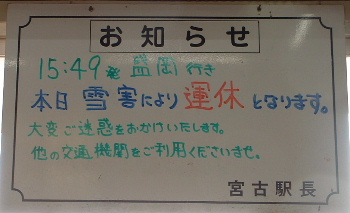 お知らせ
15:49発 盛岡行き
本日 雪害により 運休となります。
大変ご迷惑をおかけいたします。
他の交通機関をご利用くださいませ。
宮古駅長